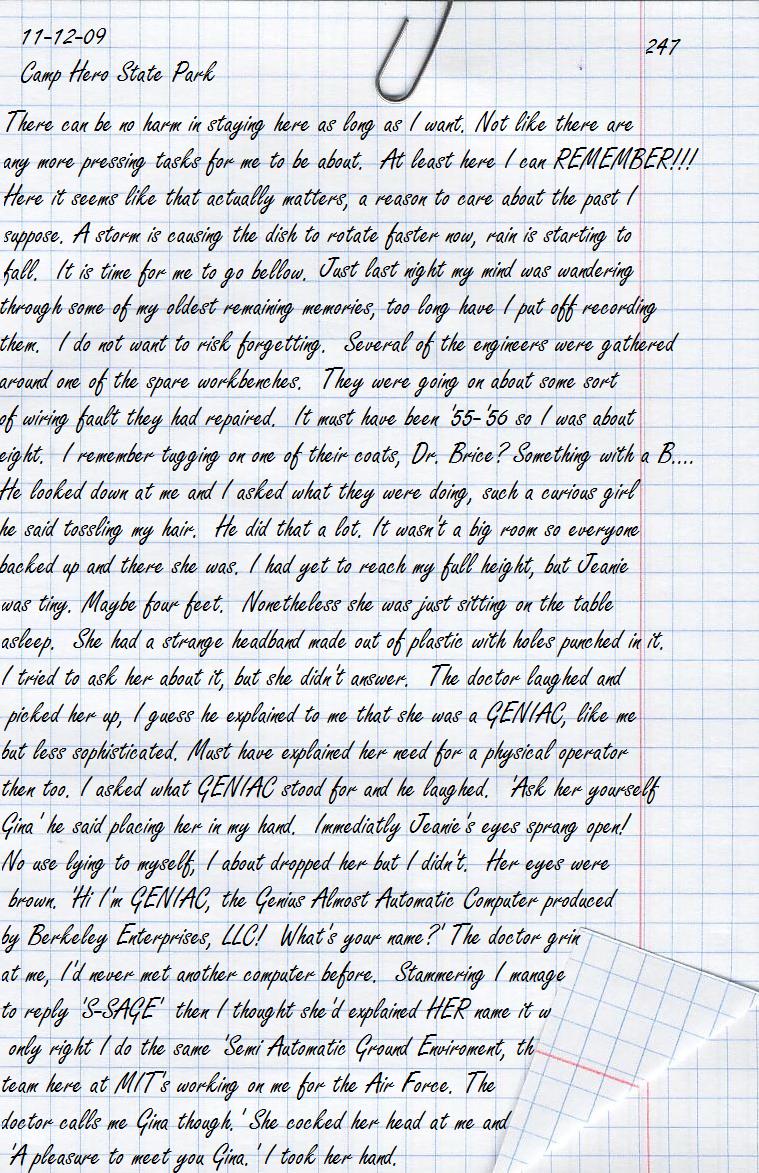 11-12-09
247
Camp Hero State Park
There can be no harm in staying here as long as I want. Not like there are
any more pressing tasks for me to be about. At least here I can REMEMBER!!!
Here it seems like that actually matters, a reason to care about the past I
suppose. A storm is causing the dish to rotate faster now, rain is starting to
fall. It is time for me to go bellow. Just last night my mind was wandering
through some of my oldest remaining memories, too long have I put off recording
them. I do not want to risk forgetting. Several of the engineers were gathered
around one of the spare workbenches. They were going on about some sort
of wiring fault they had repaired. It must have been '55-'56 so I was about
eight. I remember tugging on one of their coats, Dr. Brice? Something with a B....
He looked down at me and I asked what they were doing, such a curious girl
he said tossling my hair. He did that a lot. It wasn't a big room so everyone
backed up and there she was. I had yet to reach my full height, but Jeanie
was tiny. Maybe four feet. Nonetheless she was just sitting on the table
asleep. She had a strange headband made out of plastic with holes punched in it.
I tried to ask her about it, but she didn't answer. The doctor laughed and
picked her up, I guess he explained to me that she was a GENIAC, like me
but less sophisticated. Must have explained her need for a physical operator
then too. I asked what GENIAC stood for and he laughed. 'Ask her yourself
Gina' he said placing her in my hand. Immediatly Jeanie's eyes sprang open!
No use lying to myself, I about dropped her but I didn't. Her eyes were
brown. 'Hi I'm GENIAC, the Genius Almost Automatic Computer produced
by Berkeley Enterprises, LLC! What's your name?' The doctor grin
at me, I'd never met another computer before. Stammering I manage
to reply 'S-SAGE' then I thought she'd explained HER name it w
only right I do the same 'Semi Automatic Ground Enviroment, th
team here at MIT's working on me for the Air Force. The
doctor calls me Gina though.' She cocked her head at me and
'A pleasure to meet you Gina.' I took her hand.